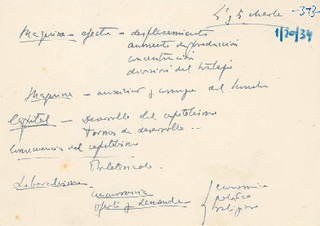 -373-
1/20/34
Maquina - efecto - desplazamiento
aumento de producción
concentración
división del trabajo
Maquina - auxiliar y amiga del hombre
Capital - Desarrollo del capitalismo
Formas de desarrollo --
Consecuencia del capitalismo
Proletariado
concurrencia
oferta y demanda
economica
politica
religiosa